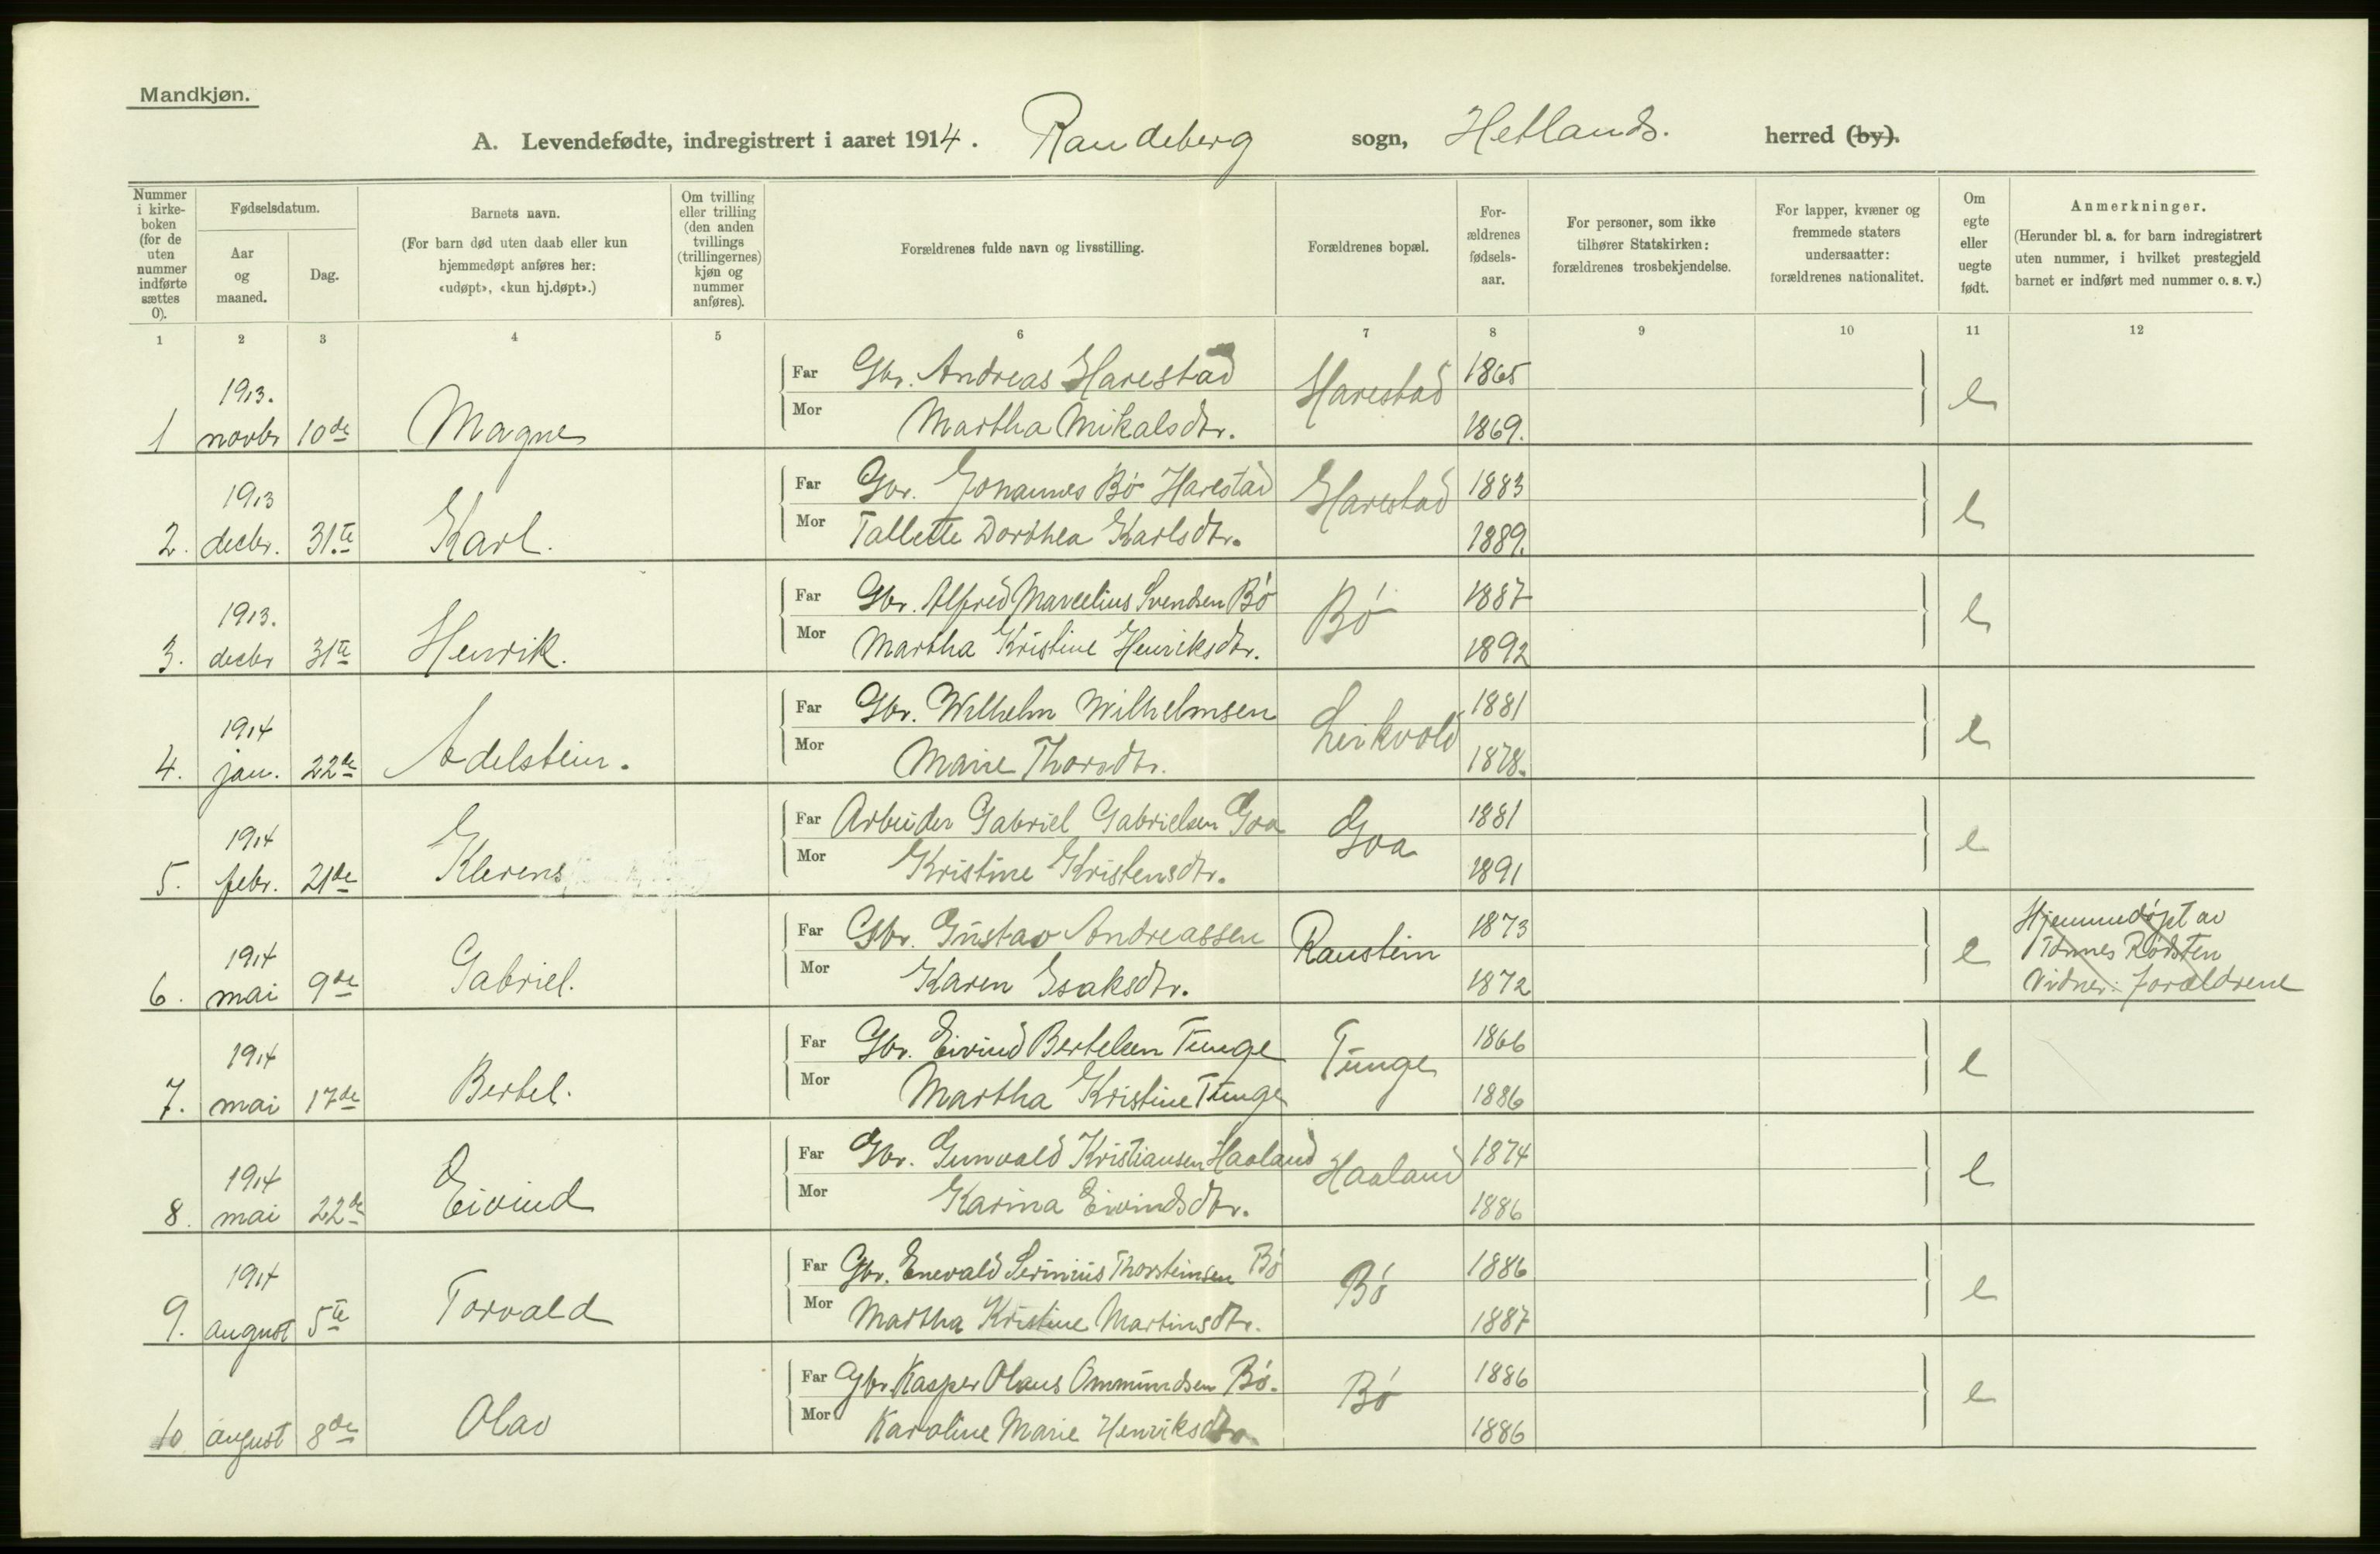 Mandkjøn.
A. Levendefødte, indregistrert i aaret 1914. Randeberg sogn, Hetlands. herred (by).
Nummer i kirke-boken (for de uten nummer indførte sættes 0).
Fødselsdatum.
Aar og maaned.
Dag.
Barnets navn.
(For barn død uten daab eller kun hjemmedøpt anføres her: «udøpt», «kun hj.døpt».)
Om tvilling eller trilling (den anden tvillings (trillingernes) kjøn og nummer anføres).
Forældrenes fulde navn og livsstilling.
Forældrenes bopæl.
For-ældrenes fødsels-aar.
For personer, som ikke tilhører Statskirken: forældrenes trosbekjendelse.
For lapper, kvæner og fremmede staters undersaatter: forældrenes nationalitet.
Om egte eller uegte født.
Anmerkninger.
(Herunder bl. a. for barn indregistrert uten nummer, i hvilket prestegjeld barnet er indført med nummer o. s. v.)
1 2 3 4 5 6 7 8 9 10 11 12
1 1913. novbr 10de Magne Far Gbr. Andreas Harestad Harestad 1865 e
Mor Martha Mikalsdtr. 1869.
2. 1913 decbr. 31.te Karl. Far Gbr. Johannes Bø Harestad Harestad 1883 e
Mor Tallette Dorthea Karlsdtr. 1889.
3. 1913. decbr 31te Henrik. Far Gbr. Alfred Marcelius Svendsen Bø Bø 1887 e
Mor Martha Kristine Henriksdtr. 1892
4. 1914 jan. 22de Adelstein. Far Gbr. Wilhelm Wilhelmsen Leikvold 1881 e
Mor Marie Thorsdtr. 1878.
5. 1914 febr. 21de Klerens Far Arbeider Gabriel Gabrielsen Goa Goa 1881 e
Mor Kristine Kristensdtr. 1891
6. 1914 mai 9de Gabriel. Far Gbr. Gustav Andreassen Raustein 1873 e Hjemmedøpt av
Tønnes Rødsten
Vidner: forældrene
Mor Karen Isaksdtr. 1872
7. 1914 mai 17de Bertel. Far Gbr. Eivind Bertelsen Tunge Tunge 1866 e
Mor Martha Kristine Tunge 1886
8. 1914 mai 22de Eivind Far Gbr. Gunvald Kristiansen Haaland Haaland 1874 e
Mor Karina Eivindsdtr. 1886
9. 1914 august 5te Torvald Far Gbr. Enevald Serinius Thorsteinsen Bø Bø 1886 e
Mor Martha Kristine Martinsdtr. 1887
10 august 8de Olav Far Gbr. Kasper Olaus Ommundsen Bø. Bø 1886 e
Mor Karoline Marie Henriksdtr. 1886